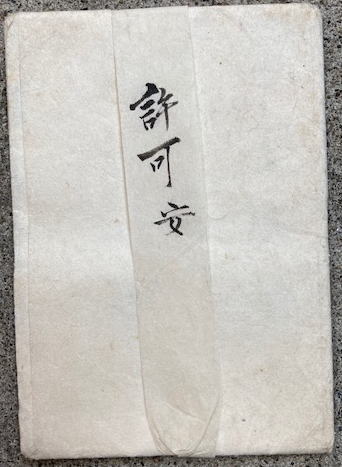 許可安